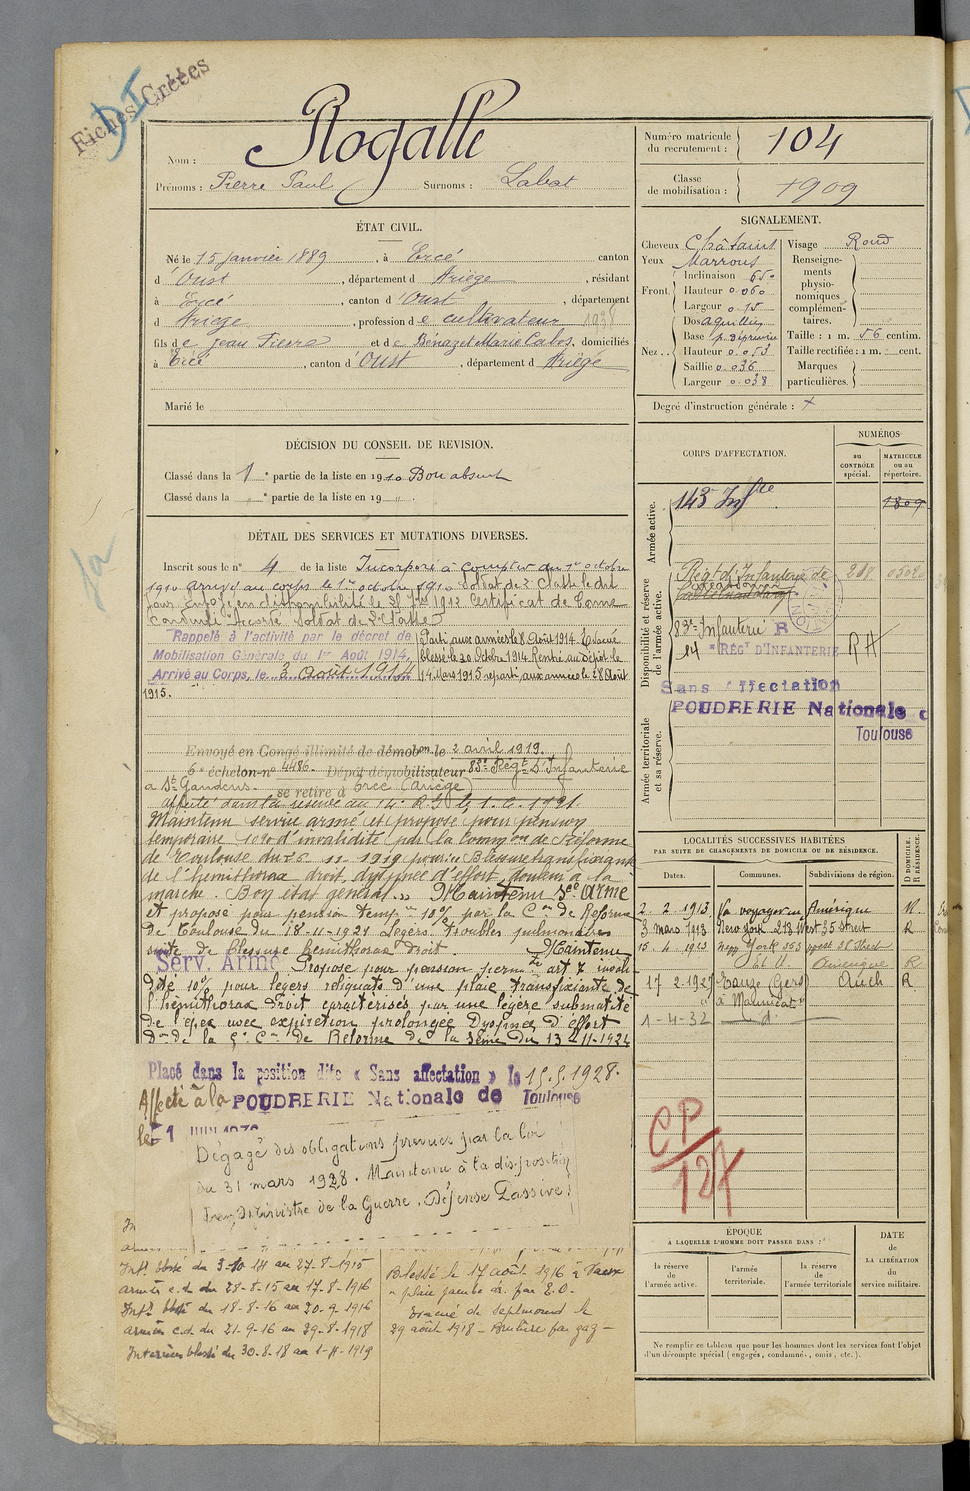 Fiches Créées
Nom : Rogalle
Prénoms : Pierre Paul Surnoms : Labat
Numéro matricule du recrutement : 104
Classe de mobilisation : 1909
ÉTAT CIVIL.
Né le 15 janvier 1889, à Ercé canton
d'Oust, département d Ariège, résidant
à Ercé, canton d'Oust, département
d Ariège, profession de cultivateur 1938
fils de Jean Pierre et de Bénazet Marie, domiciliés
à Ercé, canton d'Oust, département d Ariège
Marié le
SIGNALEMENT.
Cheveux Châtains
Yeux Marrons
Front. Inclinaison
Hauteur 0.060
Largeur 0.15
Nez .. Dos aquilin
Base
Hauteur 0.053
Saillie 0.036
Largeur 0.038
Visage Rond
Renseignements physionomiques complémentaires.
Taille : 1 m. 56 centim.
Taille rectifiée : 1 m. cent.
Marques particulières.
Degré d'instruction générale :
DÉCISION DU CONSEIL DE REVISION.
Classé dans la 1e partie de la liste en 1910 Bon absent
Classé dans la " e partie de la liste en 19 "
DÉTAIL DES SERVICES ET MUTATIONS DIVERSES.
Inscrit sous le n° 4 de la liste Incorporé à compter du 1er octobre
1910 arrivé au corps le 1er octobre 1910 Soldat de 2e classe le dit
jour Envoyé en disponibilité le 1912 Certificat de bonne
conduite Accordé Soldat de 2e classe
Rappelé à l'activité par le décret de
Mobilisation Générale du 1er Août 1914.
Arrivé au Corps, le 3 Août 1914
Parti aux armées le 8 Août 1914. Evacué
blessé le 30 Octobre 1914 Rentré au dépôt le
14 Mars 1915 reparti aux armées le 28 Août
1915.
Envoyé en Congé illimité de démobon. le 2 avril 1919.
6e échelon n° 4486. Dépôt démobilisateur 83e Régt d'Infanterie
à St Gaudens. se retire à Ercé (Ariège)
affecté dans la réserve au 14e R.I. le
Maintenu service armé et proposé pour pension
temporaire 10% d'invalidité par la Common de Réforme
de Toulouse du 11-1919 pour Blessure transfixiante
de l'hémithorax droit, dyspnée d'effort, douleur à la
marche. Bon état général. Maintenu Sce Armé
et proposé pour pension temp 10% par la Con de Réforme
de Toulouse du 18-11-1921 Légers troubles pulmonaires
suite de blessure hémithorax droit. Maintenu
Serv. Armé Proposé pour pension perm
10% pour légers reliquats d'une plaie transfixiante de
l'hémithorax droit caractérisés par une légère submatité
avec expiration prolongée Dyspnée d'effort
de la Con de Réforme de la du 13-11-1924
Placé dans la position dite « Sans affectation » le 15.5.1928.
Affecté à la POUDRERIE Nationale de Toulouse
le 1
Dégagé des obligations prévues par la loi
du 31 mars 1928. Maintenu à la disposition
du Ministre de la Guerre. Défense Passive.
Intr blessé du 3-10-14 au 27-8-1915
armées c.d. du 28-8-15 au 17-8-1916
Intr blessé du 18-8-16 au 20-9-1916
armées c.d. du 21-9-16 au 29-8-1918
Intérieur blessé du 30-8-18 au 1-11-1919
Blessé le 17 août 1916 à Vaux
plaie jambe dr. par E.O.
Evacué de Septmonts le
29 août 1918 – Brûlure par gaz –
CORPS D'AFFECTATION.
NUMÉROS
au CONTRÔLE spécial.
MATRICULE ou au répertoire.
Armée active.
143e Inftie 1809
Disponibilité et réserve de l'armée active.
Régt d'Infanterie de
83e Infanterie R
14e RÉGt D'INFANTERIE
Sans Affectation
POUDRERIE Nationale
Toulouse
Armée territoriale et sa réserve.
LOCALITÉS SUCCESSIVES HABITÉES
PAR SUITE DE CHANGEMENTS DE DOMICILE OU DE RÉSIDENCE.
Dates. Communes. Subdivisions de région. D DOMICILE. R RÉSIDENCE.
2. 2. 1913 Va voyager en Amérique
3 mars 1913 New York 218 West 35 Street R
15. 4. 1913 New York 355 West 58 Street
Et U. Amérique R
17. 2. 1927 Eauze (Gers) Auch R
1-4-32 d°
CP/127
ÉPOQUE
A LAQUELLE L'HOMME DOIT PASSER DANS :
la réserve de l'armée active.
l'armée territoriale.
la réserve de l'armée territoriale
DATE de LA LIBÉRATION du service militaire.
Ne remplir ce tableau que pour les hommes dont les services font l'objet
d'un décompte spécial (engagés, condamnés, omis, etc.).